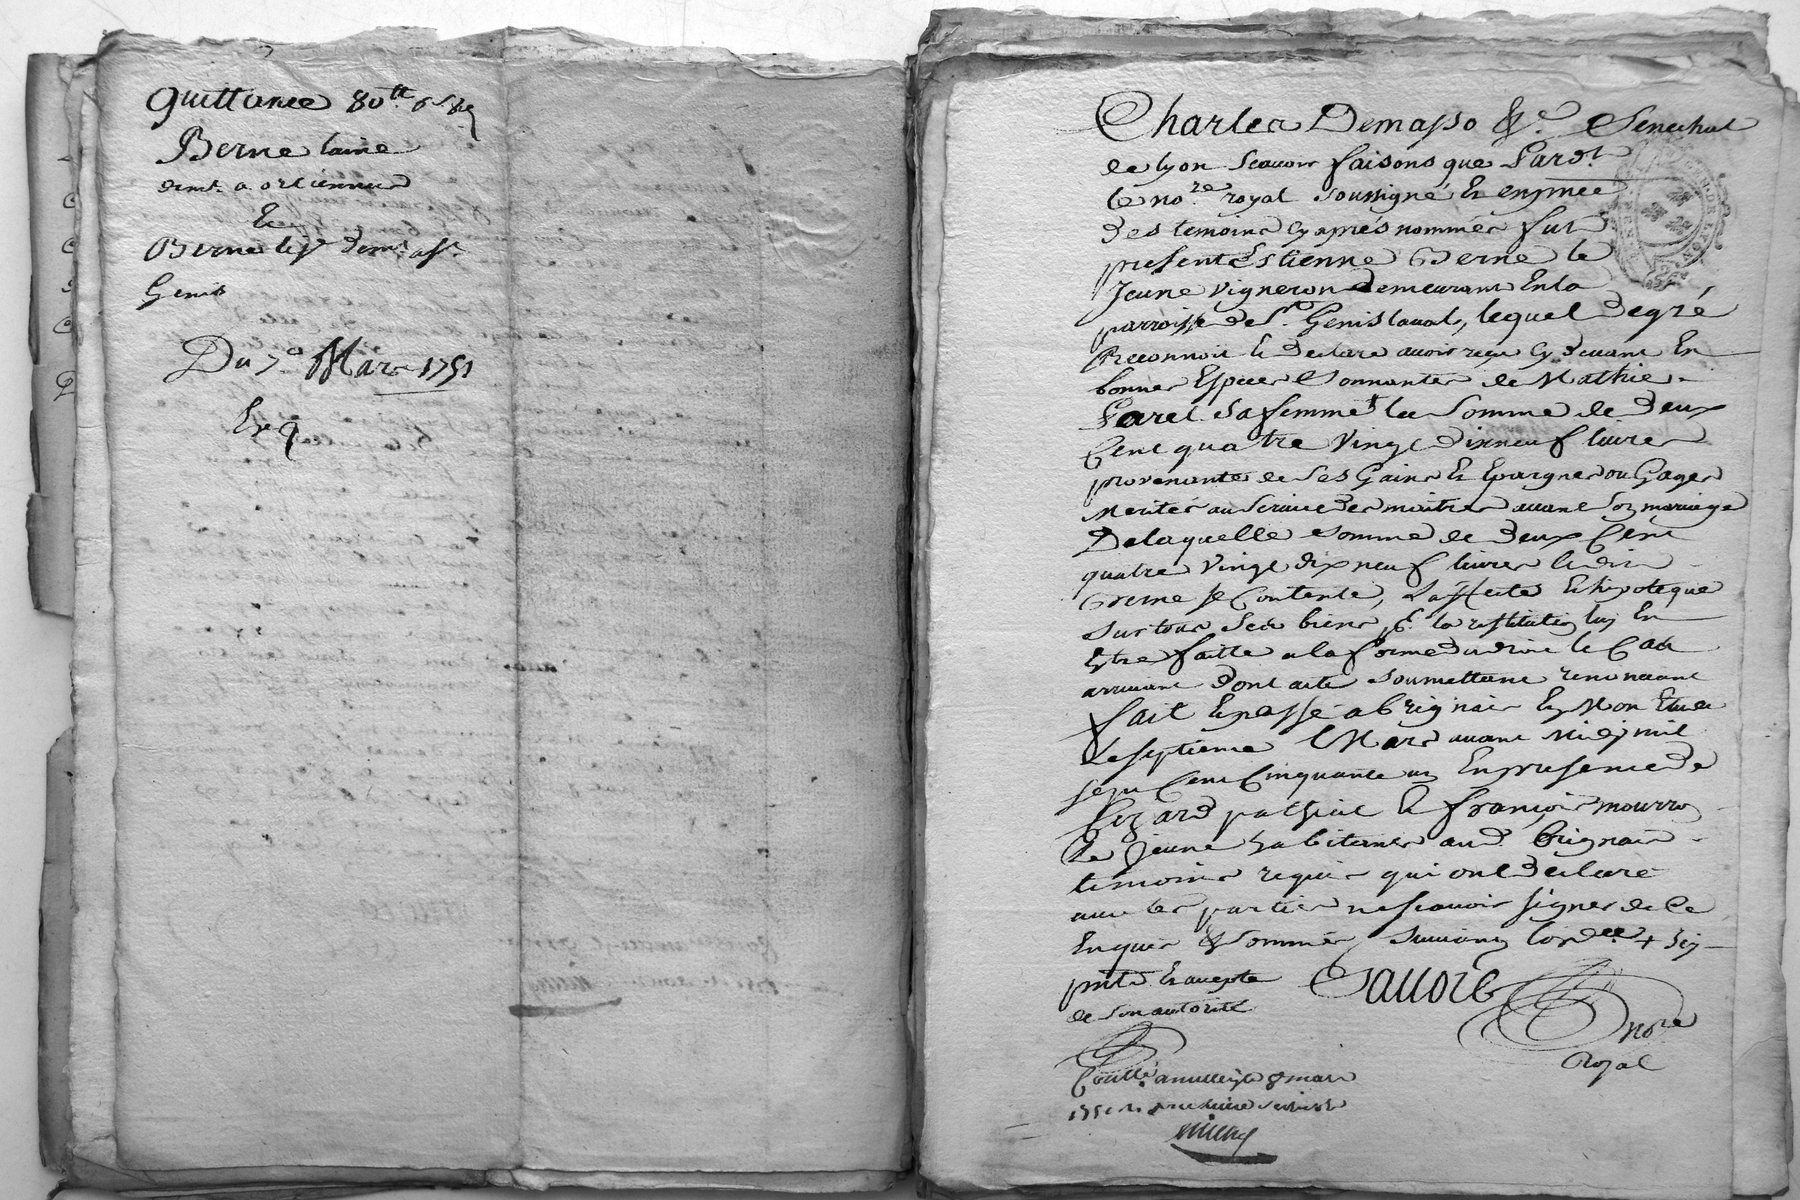 quittance 80tt 6s
Berne laine
demt a orlienna
Et
Berne le j. demt a st
Genis
Du 7e Mars 1751
Exq
Charles Demasso &c Senechal
de lyon scauoir faisons que Pardt
le nore royal soussigné Et en pnce
des temoins cy aprés nommés fut
present Estienne Berne le
Jeune vigneron demeurant En la
parroisse de St Genis laual, lequel de gré
Reconnoit Et declare auoir reçu cy deuant En
bonnes Especes Sonnantes de Mathie
Paret sa femme + la somme de deux
Cent quatre vingt dix neuf liures
prouenante de ses Gains Et Epargnes ou Gages
merités au seruice des maitres auant son mariage
De laquelle somme de deux Cent
quatre vingt dix neuf liures ledit
Berne se Contente, L'affecte Et hipoteque
sur tous ses biens pr la restitution luy En
Etre faitte a la forme du droit le Cas
arriuant dont acte soumettant renonceant
fait Et passé a brignais En Mon Etude
Le septieme Mars auant Midy mil
sept Cent Cinquante un En presence de
pathiot Et françois mourron
le jeune habitants aud. brignais
temoins requis qui ont declaré
auec les parties ne scauoir signer de Ce
Enquis & sommés suiuant l'ordce + icy
pnte Et acepte
de son autorité
Sauore
nore
Royal
Controllé a millery le 8 mars
1751 R